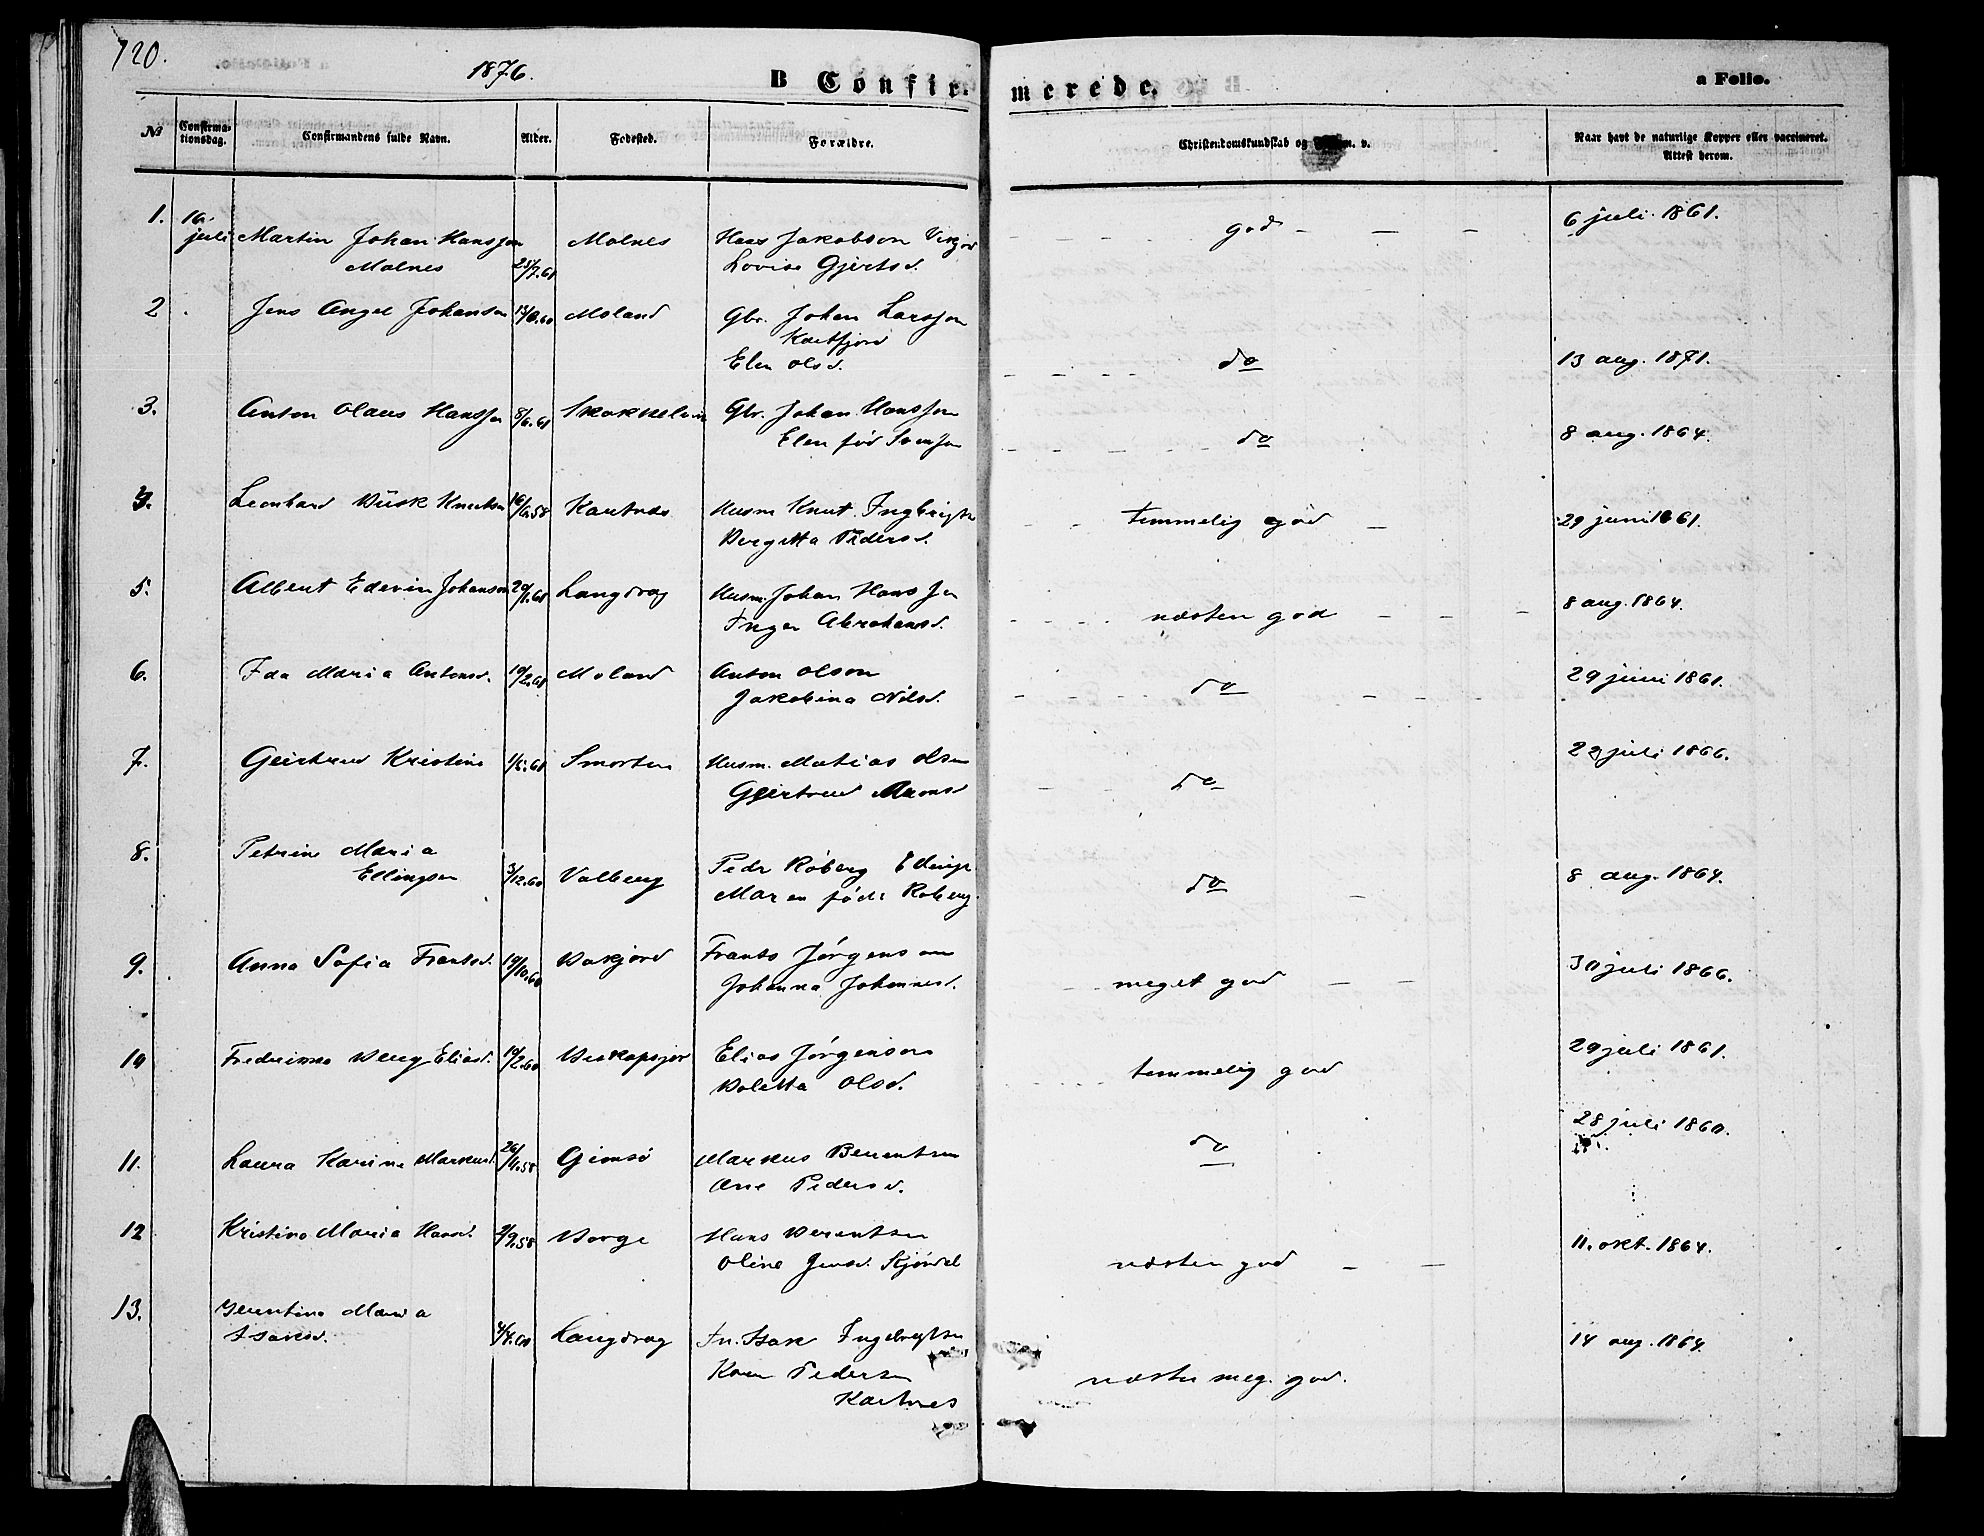 120.
1876.
B Confirmerede.
a Folio.
No
Confirmationsdag.
Confirmandens fulde Navn.
Alder.
Fødested.
Forældre.
Christendomskundskab og
Naar havt de naturlige Kopper eller vaccineret.
Attest herom.
1. 16. juli Martin Johan Hansson Molnes 25/7.61 Molnes Hans Jakobson Lovise Gjertsd. god 6 juli 1861.
2 Jens Angel Johanson Moland Gbr. Johan Larsson Elen Olsd. do 13 aug. 1871.
3. Anton Olaus Hansson 8/6.61 Skokkelvik Gbr. Johan Hansson Elen fød do 8 aug. 1864.
4. Leonhard Knutson 16/6.58 Kartnes Husm Knut Ingbrigts Bergitta Pedersd. temmelig god 29 juni 1861.
5. Albert Edevin Johanson 20/1.61 Langdrag Husm. Johan Hansson Inger Abrahamsd. næsten god 8 aug. 1864.
6. Ida Maria Antonsd. 10/2.61 Moland Anton Olson Jakobina Nilsd. do 29 juni 1861.
7. Geirtrud Kristine Smorten Husm. Matias Olsen Geirtrud do 29 juli 1866.
8. Petrine Maria Ellingsen 3/12.60 Valberg Peder Röberg Ellings Maren föd Roberg do 8 aug. 1864.
9. Anna Sofia Frantsd. 14/10.60 Bakjord Frants Jörgenson Johanna Johannesd. meget god 30 juli 1866.
10 Berg Eliasd. 10/2.60 Elias Jörgenson Boletta Olsd. temmelig god 29 juli 1861.
11. Laura Karine Markusd. 26/11.58 Gimsö Markus Berentsen Ane Pedersd. do 28 juli 1860.
12 Kristine Maria Hansd. 2/9.58 Borge Hans Berentsen Oline Jensd. næsten god 11. okt. 1864.
13. Maria Isaksd. Langdrag In. Isak Ingebrigtsen Karen Pedersen Kartnes næsten meg. god. 14 aug. 1864.